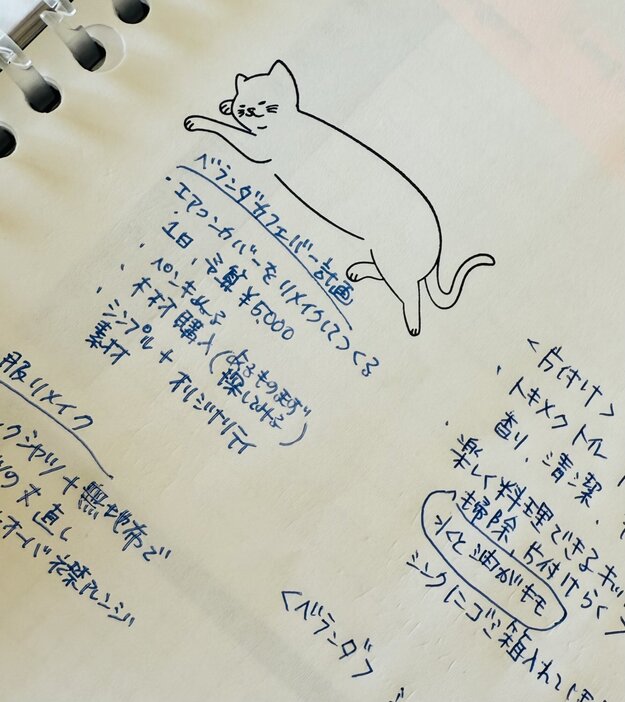 ベランダカフェバー計画
・エアコンカバーをリメイクしてつくる
1日、予算 ¥5,000
・ペンキぬる
・木材購入(あるものまず探してみる)
・シンプル+オリジナリティ
素材
服リメイク
クシャツ+無地布で
の丈直し
オーバー襟アレンジ
<片付け>
・トキメクトイレ
香り、清潔、
・楽しく料理できるキッ
掃除、片付けらく
水と油がキモ
シンクにゴミ箱入れて
<ベランダ>